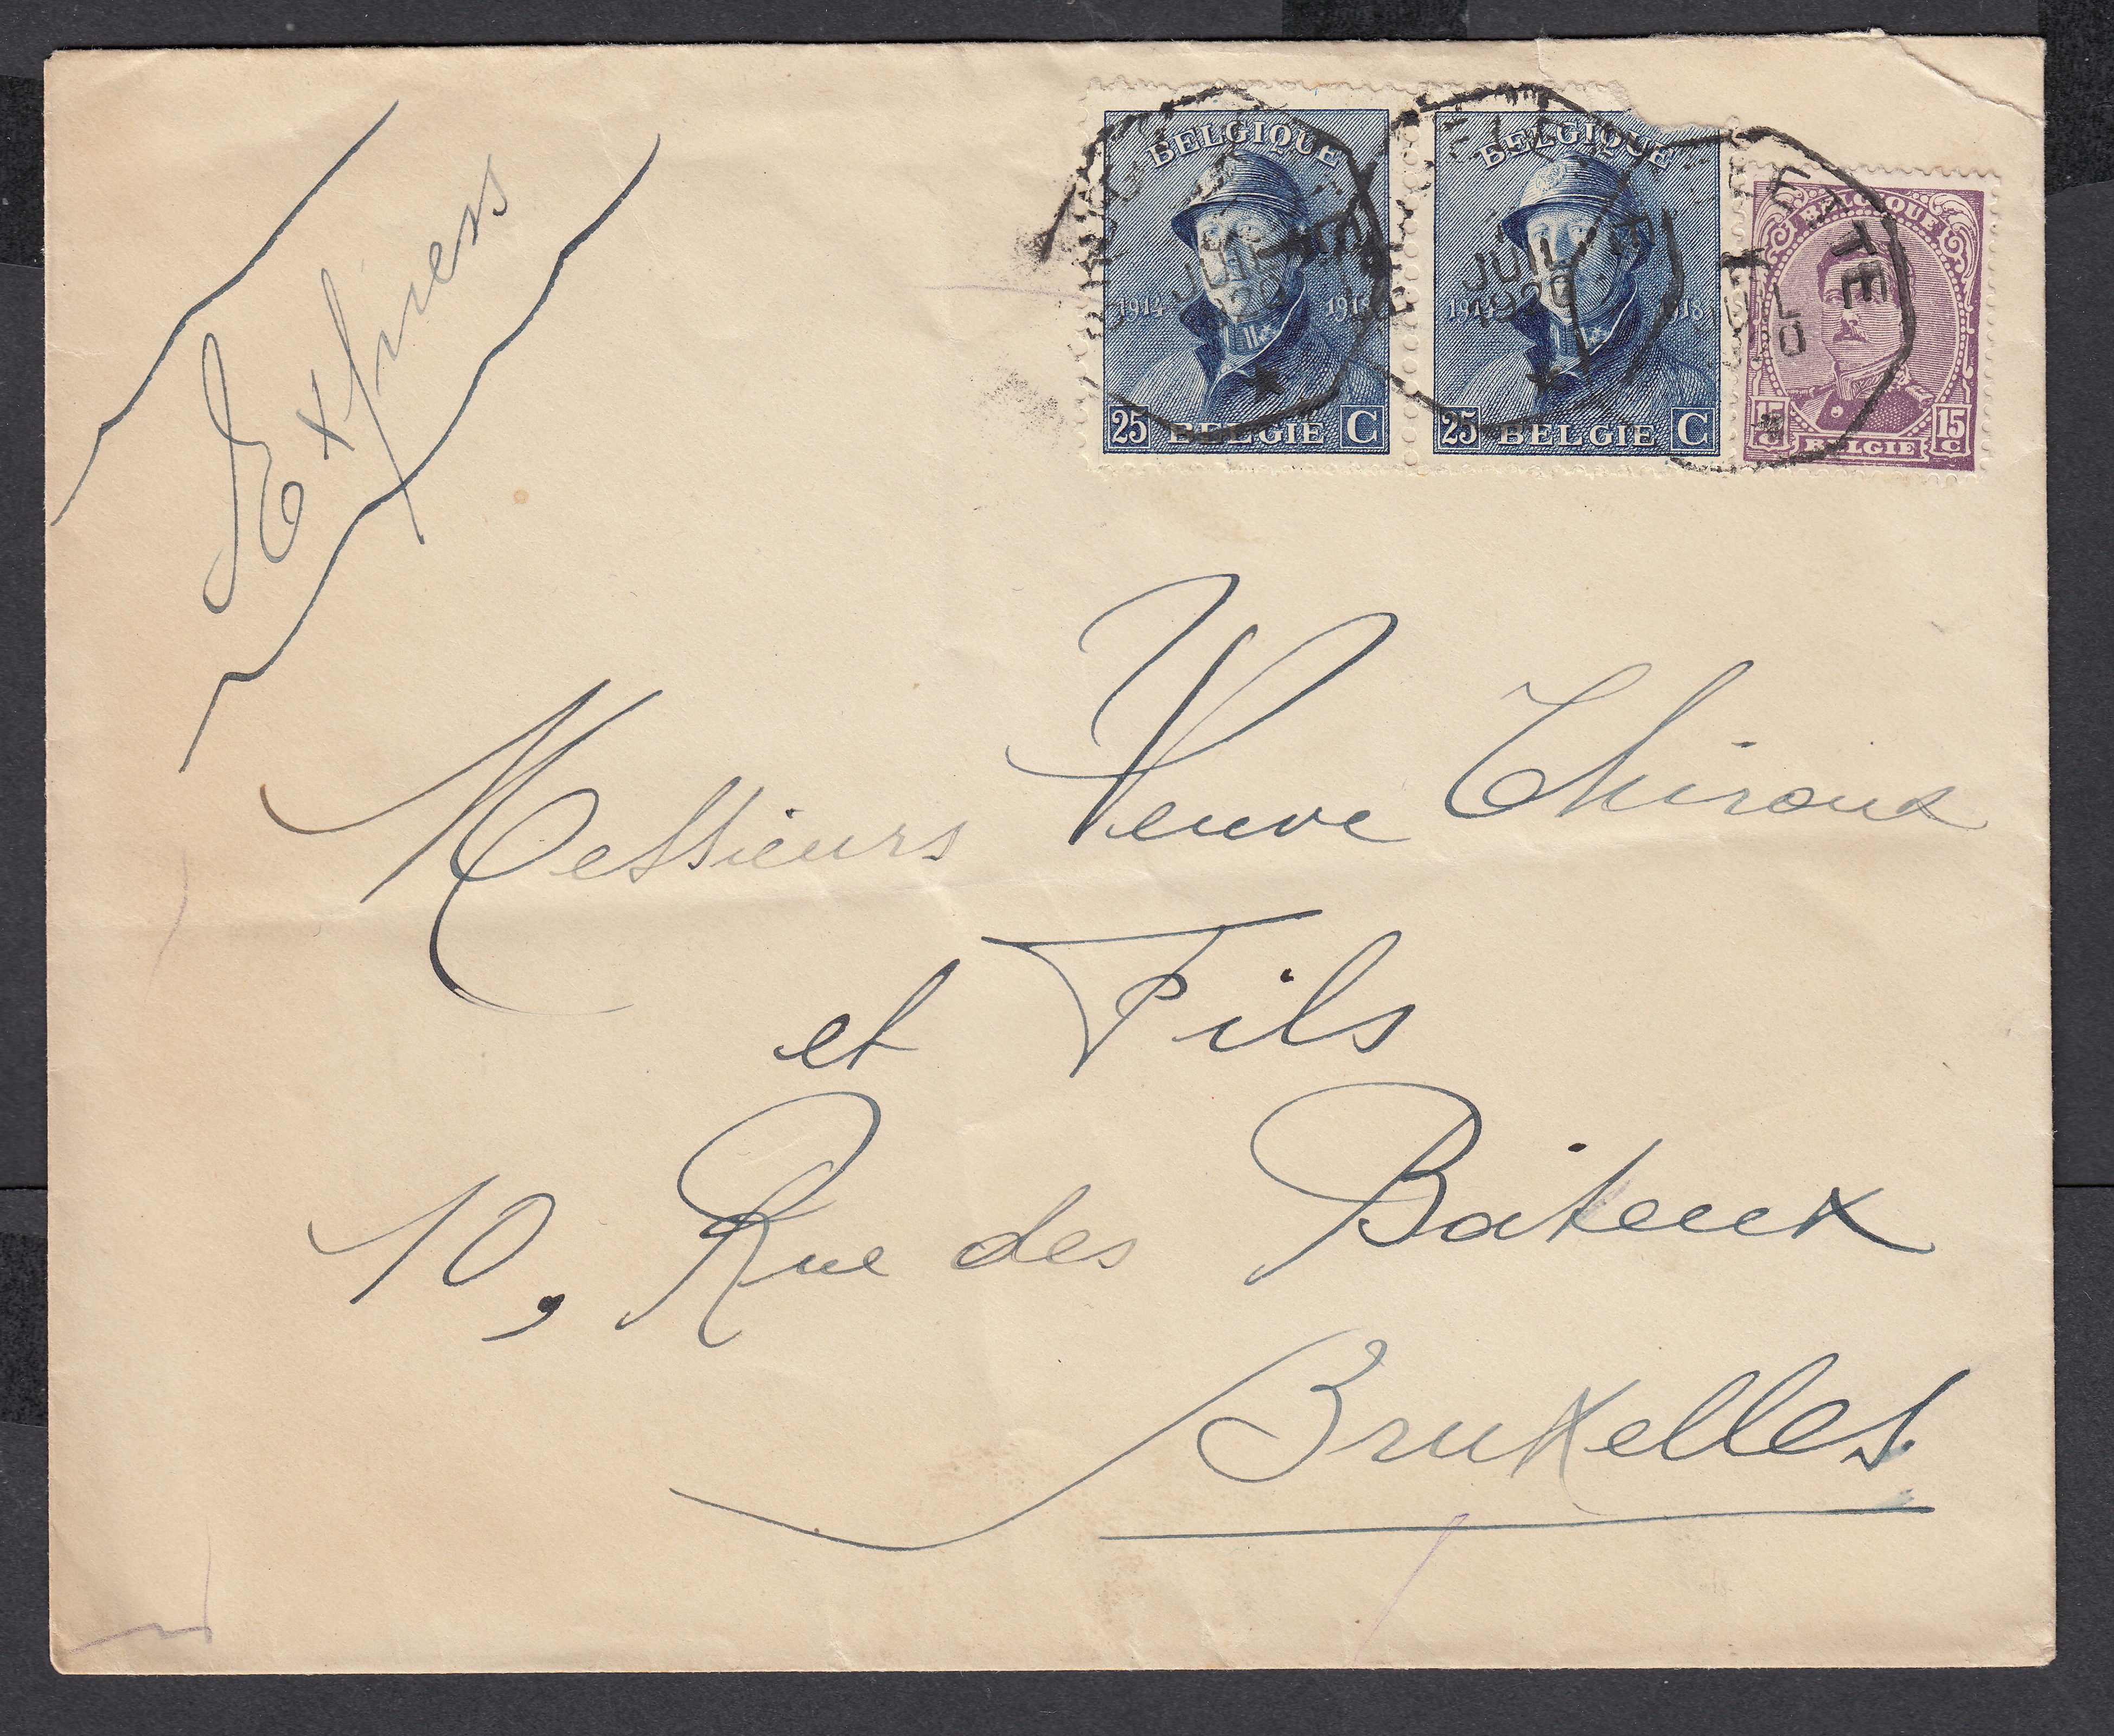 Express
BELGIQUE
1914 1918
25 BELGIE C
BELGIQUE
1914 1918
25 BELGIE C
BELGIQUE
15 C BELGIE 15 C
JUIL
1920
JUIL
1920
Messieurs Veuve Thiroux
et Fils
10, Rue des Bateux
Bruxelles.